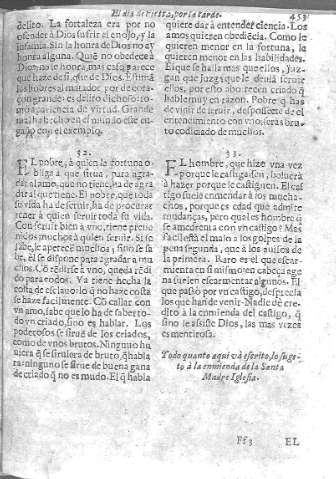 El dia de fiesta, por la tarde. 453
delito. La fortaleza era por no
ofender à Dios sufrir el enojo, y la
infamia. Sin la honra de Dios no ay
honra alguna. Qué no obedece à
Dios no le honra, mas caso parece
que haze de si, que de Dios. Estimã
los hombres al matador por de cora-
çon grande: el delito dichoso to-
ma apariencia de virtud. Grande
mal ha hecho en el mundo este en-
gaño con el exemplo.
52.
EL pobre, à quien la fortuna o-
bliga à que sirva, para agra-
dar al amo, que no tiene, ha de agra-
dar al que tiene. El pobre, que toda
su vida ha de servir, ha de procurar
tener à quien servir toda su vida.
Con servir bien à vno, tiene preue
nidos muchos à quien servir. Si se
sabe, le apetecē muchos; sino se sa-
be, él se dispone para agradar à mu
chos. Cō rēdirse à vno, queda rēdi
do para todos. Ya tiene hecha la
costa de esclavo: lo q̃ no haze costa
se haze facilmente. Cō callar con
vn amo, sabe que lo ha de saber to-
do vn criado, sino es hablar. Los
poderosos se siruē de los criados,
como de vnos brutos. Ninguno hu
viera q̃ se sirviera de bruto, q̃ habla
ra: ninguno se sirve de buena gana
de criado q̃ no es mudo. El q̃ habla
quiere dar à entender ciencia. Los
amos quieren obediēcia. Como le
quieren menor en la fortuna, le
quieren menor en las habilidades.
El que se halla mas que ellos, juz-
gan que juzga que le devia servir
ellos, por esto aborrecen criado q̃
hable muy en razon. Pobre q̃ has
de vivir de servir, desposseete de el
entendimiento con vno, serás bru-
to codiciado de muchos.
53.
EL hombre, que hize vna vez
porque le castigassen, bolverà
à hazer porque le castiguen. El cas
tigo suele enmendar à los mucha-
chos, porque es edad que admite
mudanças, pero qual es hombre q̃
se amedrenta con vn castigo? Mas
facil està el malo à los golpes de la
pena segunda, que à los avisos de
la primera. Raro es el que escar-
mienta en si mismo; en cabeça age
na suelen escarmentar algunos. El
que passò por vn castigo, desprecia
los que han de venir. Nadie de cre-
dito à la enmienda del castigo, q̃
sino le assiste Dios, las mas vezes
es mentirosa.
Todo quanto aqui và escrito, lo suge-
to à la enmienda de la Santa
Madre Iglesia.
Ff 3 EL